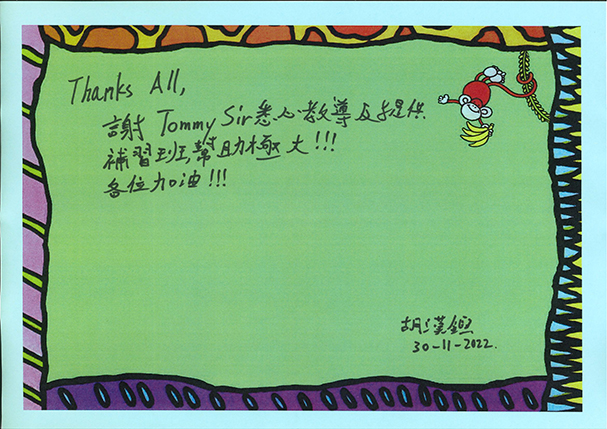 Thanks All,
謝 Tommy Sir悉心教導及提供
補習班,幫助極大!!!
各位加油!!!
胡漢
30-11-2022.